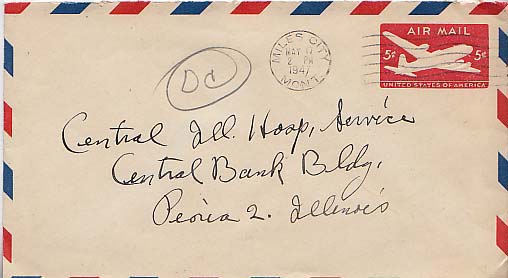 AIR MAIL
5¢ 5¢
UNITED STATES OF AMERICA
MILES CITY
MAY
2 PM
1947
MONT.
Central Ill. Hosp, Service
Central Bank Bldg,
Peoria 2. Illinois